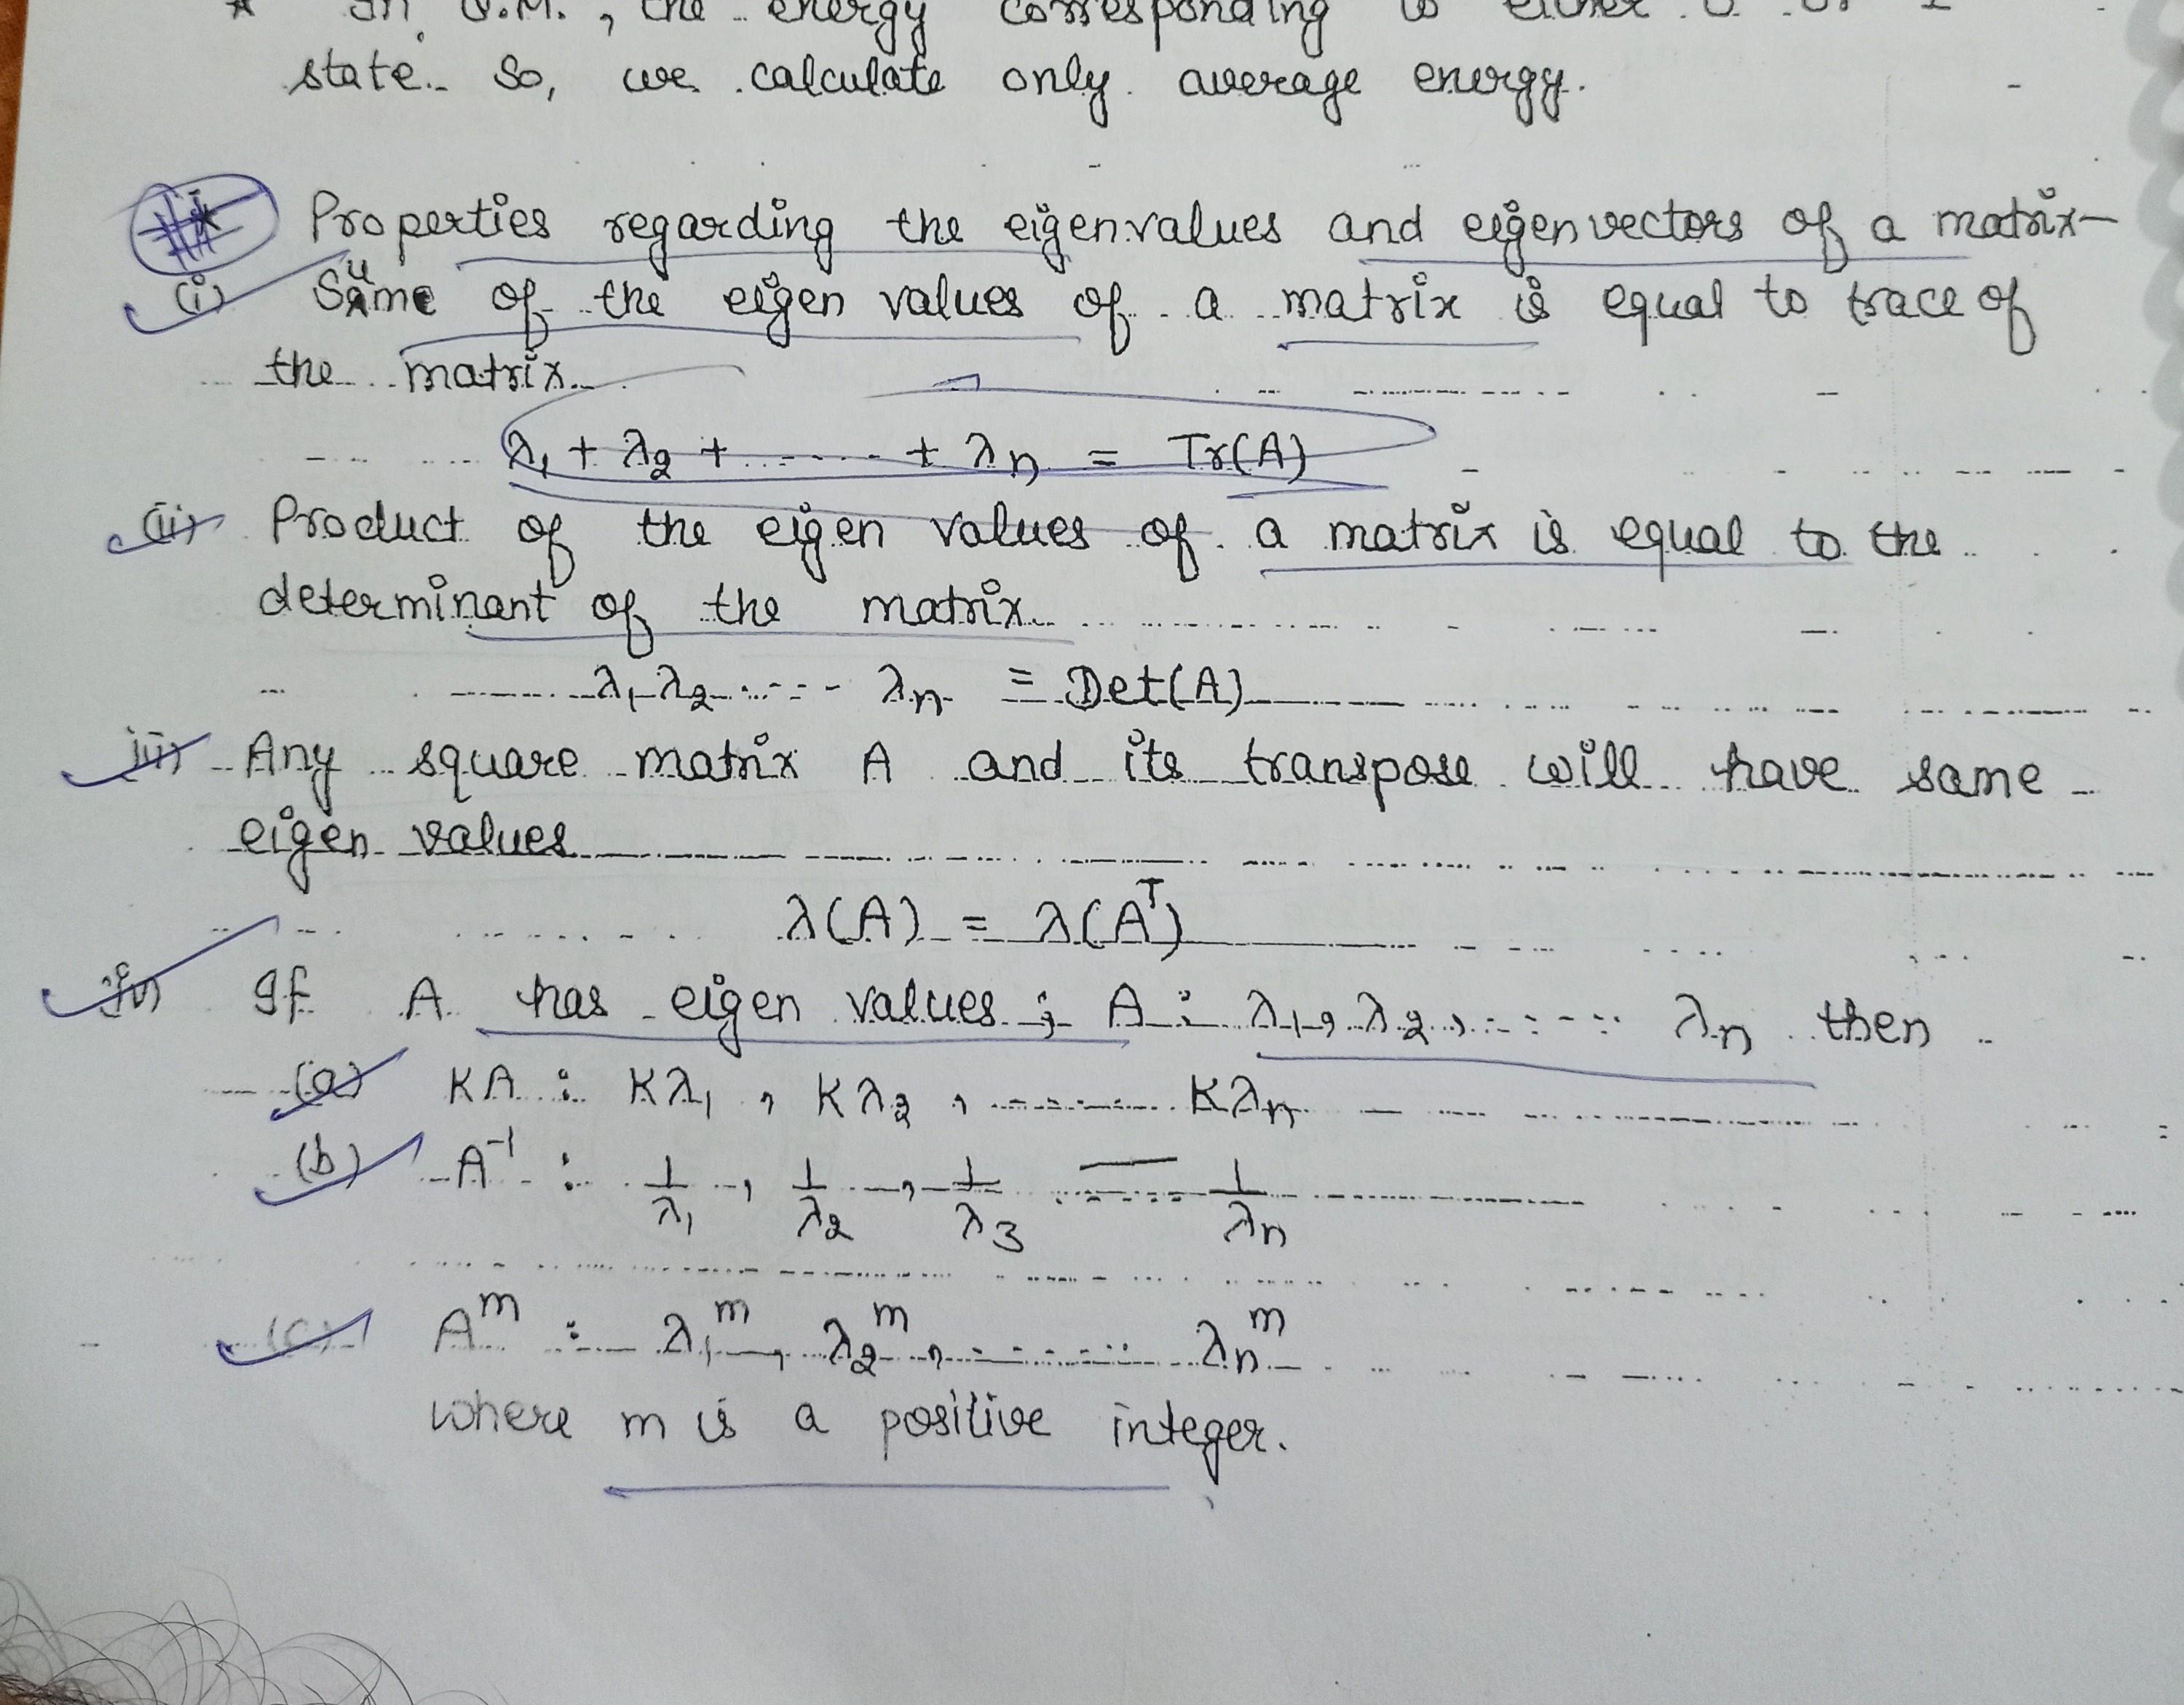 * In Q.M., the energy corresponding to either 0 or 1
state. So, we calculate only average energy.
* Properties regarding the eigen values and eigen vectors of a matrix-
(i) Sume of the eigen values of a matrix is equal to trace of
the matrix.
λ₁ + λ₂ + ...... + λₙ = Tr(A)
(ii) Product of the eigen values of a matrix is equal to the
determinant of the matrix.
λ₁ λ₂ ...... λₙ = Det(A)
(iii) Any square matrix A and its transpose will have same
eigen values
λ(A) = λ(Aᵀ)
(iv) If A has eigen values ; A : λ₁, λ₂, ...... λₙ then
(a) KA : Kλ₁, Kλ₂, ...... Kλₙ
(b) A⁻¹ : 1/λ₁, 1/λ₂, 1/λ₃ ...... 1/λₙ
(c) Aᵐ : λ₁ᵐ, λ₂ᵐ, ...... λₙᵐ
where m is a positive integer.